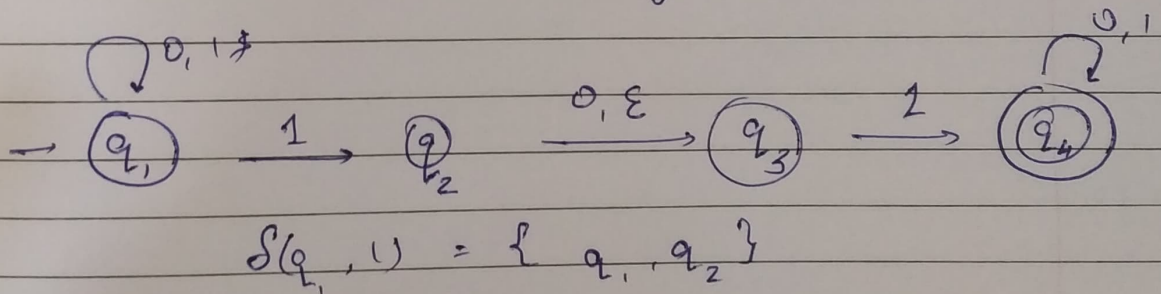 0, 1 0, 1
→ q₁ 1 q₂ 0, ε q₃ 1 q₄
δ(q₁, 1) = { q₁, q₂ }